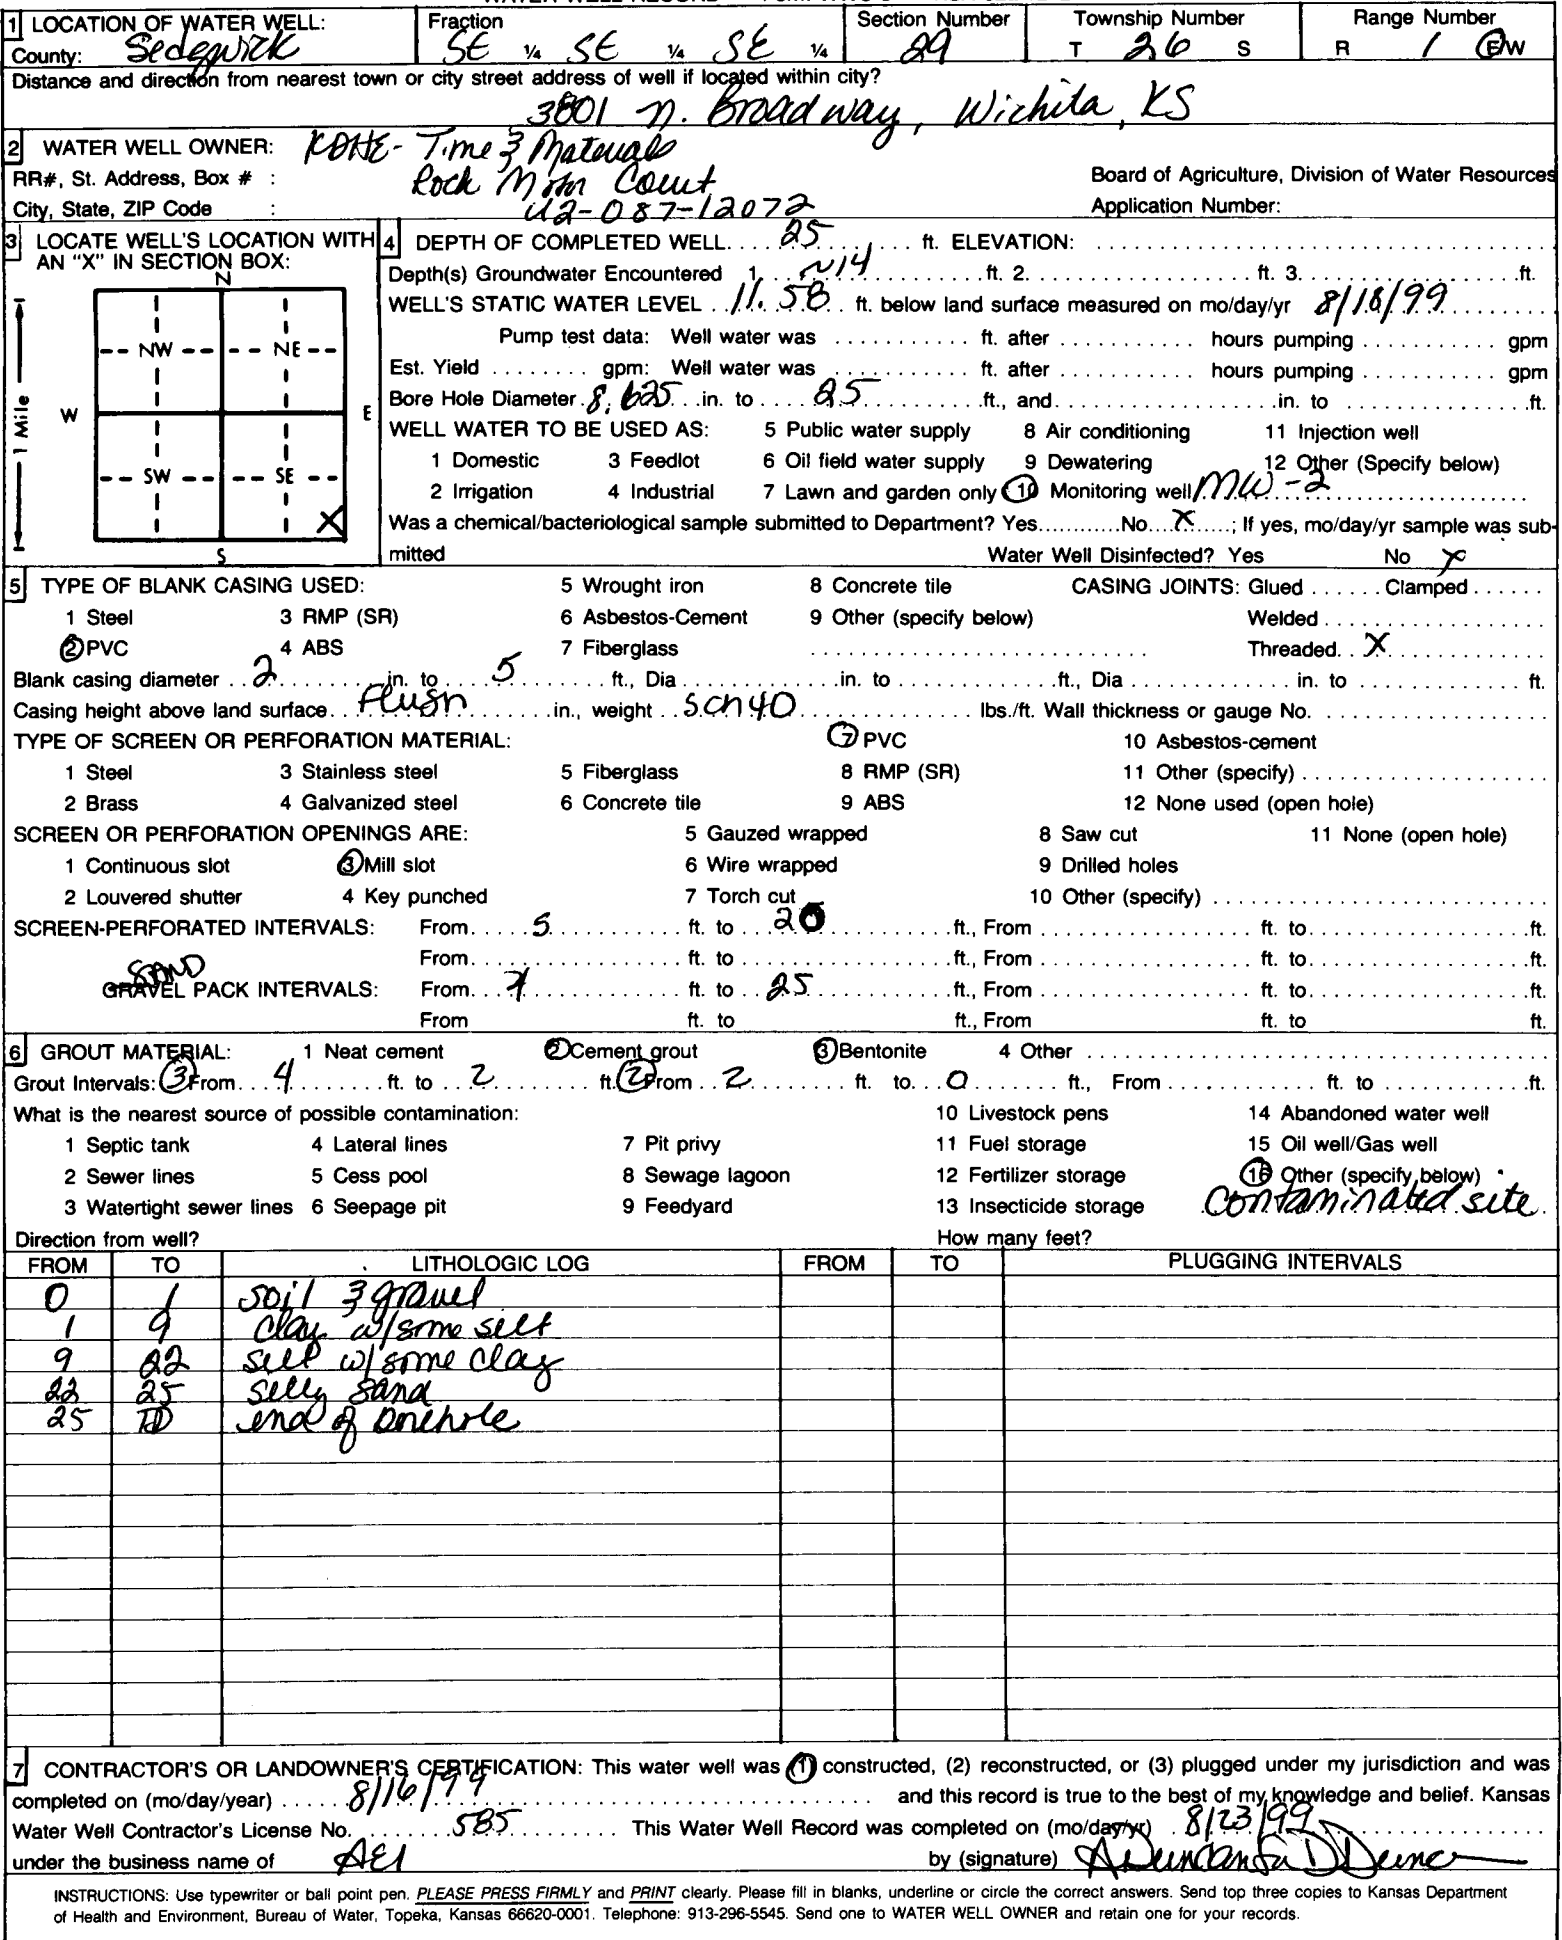 1 LOCATION OF WATER WELL: Fraction Section Number Township Number Range Number
County: Sedgwick SE ¼ SE ¼ SE ¼ 29 T 26 S R 1 E/W
Distance and direction from nearest town or city street address of well if located within city?
3801 N. Broadway, Wichita, KS
2 WATER WELL OWNER: KDHE - Time & Materials
RR#, St. Address, Box # : Rock Motor Court Board of Agriculture, Division of Water Resources
City, State, ZIP Code : U2-087-12072 Application Number:
3 LOCATE WELL'S LOCATION WITH AN "X" IN SECTION BOX:
N
NW NE
W E
1 Mile
SW SE
X
S
4 DEPTH OF COMPLETED WELL 25 ft. ELEVATION:
Depth(s) Groundwater Encountered 1. ~14 ft. 2. ft. 3. ft.
WELL'S STATIC WATER LEVEL 11.58 ft. below land surface measured on mo/day/yr 8/18/99
Pump test data: Well water was ft. after hours pumping gpm
Est. Yield gpm: Well water was ft. after hours pumping gpm
Bore Hole Diameter 8.625 in. to 25 ft., and in. to ft.
WELL WATER TO BE USED AS: 5 Public water supply 8 Air conditioning 11 Injection well
1 Domestic 3 Feedlot 6 Oil field water supply 9 Dewatering 12 Other (Specify below)
2 Irrigation 4 Industrial 7 Lawn and garden only 10 Monitoring well MW-2
Was a chemical/bacteriological sample submitted to Department? Yes No X ; If yes, mo/day/yr sample was sub-
mitted Water Well Disinfected? Yes No X
5 TYPE OF BLANK CASING USED: 5 Wrought iron 8 Concrete tile CASING JOINTS: Glued Clamped
1 Steel 3 RMP (SR) 6 Asbestos-Cement 9 Other (specify below) Welded
2 PVC 4 ABS 7 Fiberglass Threaded X
Blank casing diameter 2 in. to 5 ft., Dia in. to ft., Dia in. to ft.
Casing height above land surface Flush in., weight sch 40 lbs./ft. Wall thickness or gauge No.
TYPE OF SCREEN OR PERFORATION MATERIAL: 7 PVC 10 Asbestos-cement
1 Steel 3 Stainless steel 5 Fiberglass 8 RMP (SR) 11 Other (specify)
2 Brass 4 Galvanized steel 6 Concrete tile 9 ABS 12 None used (open hole)
SCREEN OR PERFORATION OPENINGS ARE: 5 Gauzed wrapped 8 Saw cut 11 None (open hole)
1 Continuous slot 3 Mill slot 6 Wire wrapped 9 Drilled holes
2 Louvered shutter 4 Key punched 7 Torch cut 10 Other (specify)
SCREEN-PERFORATED INTERVALS: From 5 ft. to 20 ft., From ft. to ft.
From ft. to ft., From ft. to ft.
SAND
GRAVEL PACK INTERVALS: From ft. to 25 ft., From ft. to ft.
From ft. to ft., From ft. to ft.
6 GROUT MATERIAL: 1 Neat cement 2 Cement grout 3 Bentonite 4 Other
Grout Intervals: 3 From 4 ft. to 2 ft. 2 From 2 ft. to 0 ft., From ft. to ft.
What is the nearest source of possible contamination: 10 Livestock pens 14 Abandoned water well
1 Septic tank 4 Lateral lines 7 Pit privy 11 Fuel storage 15 Oil well/Gas well
2 Sewer lines 5 Cess pool 8 Sewage lagoon 12 Fertilizer storage 16 Other (specify below)
3 Watertight sewer lines 6 Seepage pit 9 Feedyard 13 Insecticide storage contaminated site
Direction from well? How many feet?
FROM TO LITHOLOGIC LOG FROM TO PLUGGING INTERVALS
0 1 soil & gravel
1 9 clay w/some silt
9 22 silt w/some clay
22 25 silty sand
25 TD end of borehole
7 CONTRACTOR'S OR LANDOWNER'S CERTIFICATION: This water well was (1) constructed, (2) reconstructed, or (3) plugged under my jurisdiction and was
completed on (mo/day/year) 8/16/99 and this record is true to the best of my knowledge and belief. Kansas
Water Well Contractor's License No. 585 This Water Well Record was completed on (mo/day/yr) 8/23/99
under the business name of AEI by (signature)
INSTRUCTIONS: Use typewriter or ball point pen. PLEASE PRESS FIRMLY and PRINT clearly. Please fill in blanks, underline or circle the correct answers. Send top three copies to Kansas Department
of Health and Environment, Bureau of Water, Topeka, Kansas 66620-0001. Telephone: 913-296-5545. Send one to WATER WELL OWNER and retain one for your records.